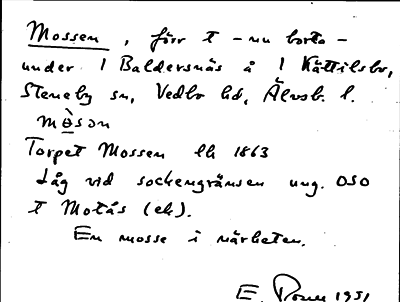 Mossen, förr t – nu borta –
under 1 Baldersnäs å 1 Kättilsbo,
Steneby sn, Vedbo hd, Älvsb. l.
mòsən
Torpet Mossen lk 1863
Låg vid sockengränsen ung. OSO
t Motås (ek).
En mosse i närheten.
E. 1951